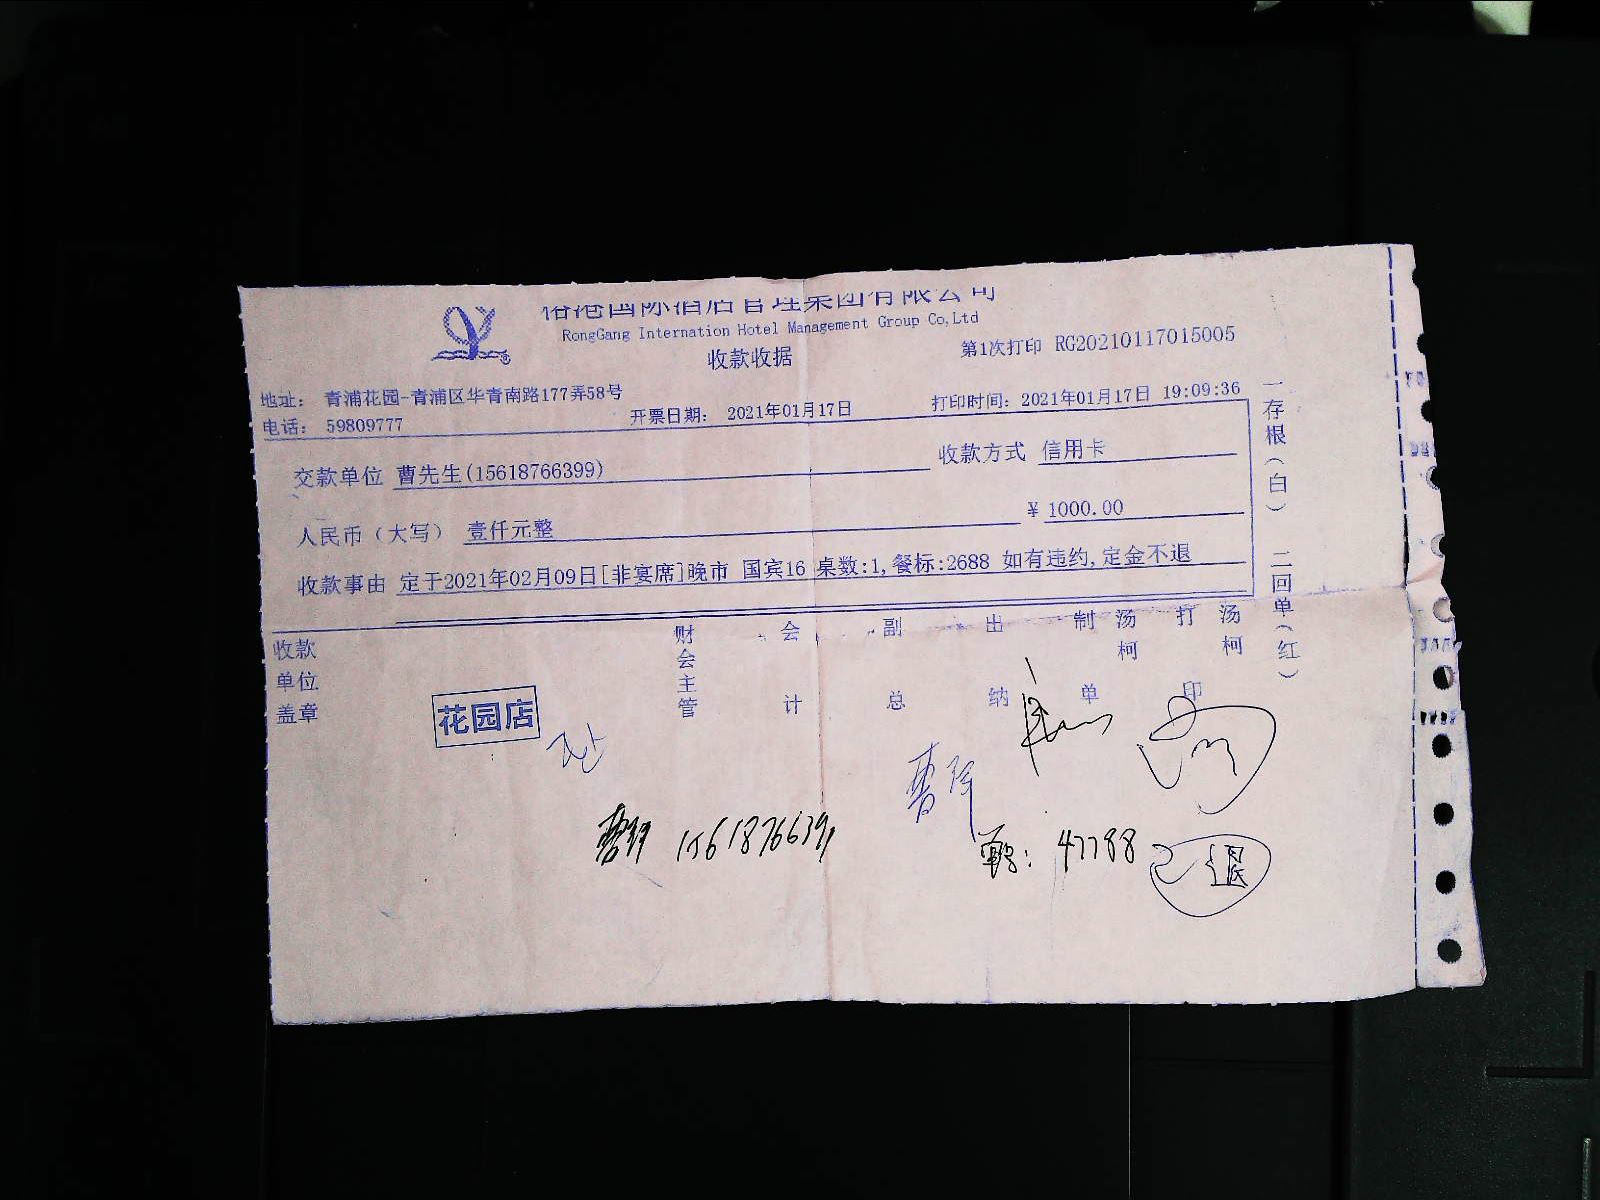 国际酒店管理集团有限公司
RongGang Internation Hotel Management Group Co,Ltd
收款收据
第1次打印 RG20210117015005
地址： 青浦花园-青浦区华青南路177弄58号
电话： 59809777
开票日期： 2021年01月17日
打印时间：2021年01月17日 19:09:36
交款单位 曹先生(15618766399)
收款方式 信用卡
人民币（大写） 壹仟元整
¥ 1000.00
收款事由 定于2021年02月09日[非宴席]晚市 国宾16 桌数:1,餐标:2688 如有违约,定金不退
一存根（白） 二回单（红）
收款单位盖章
财会主管
会计
副总
出纳
制单
汤柯
打印
汤柯
花园店
15618766399
47788
已退